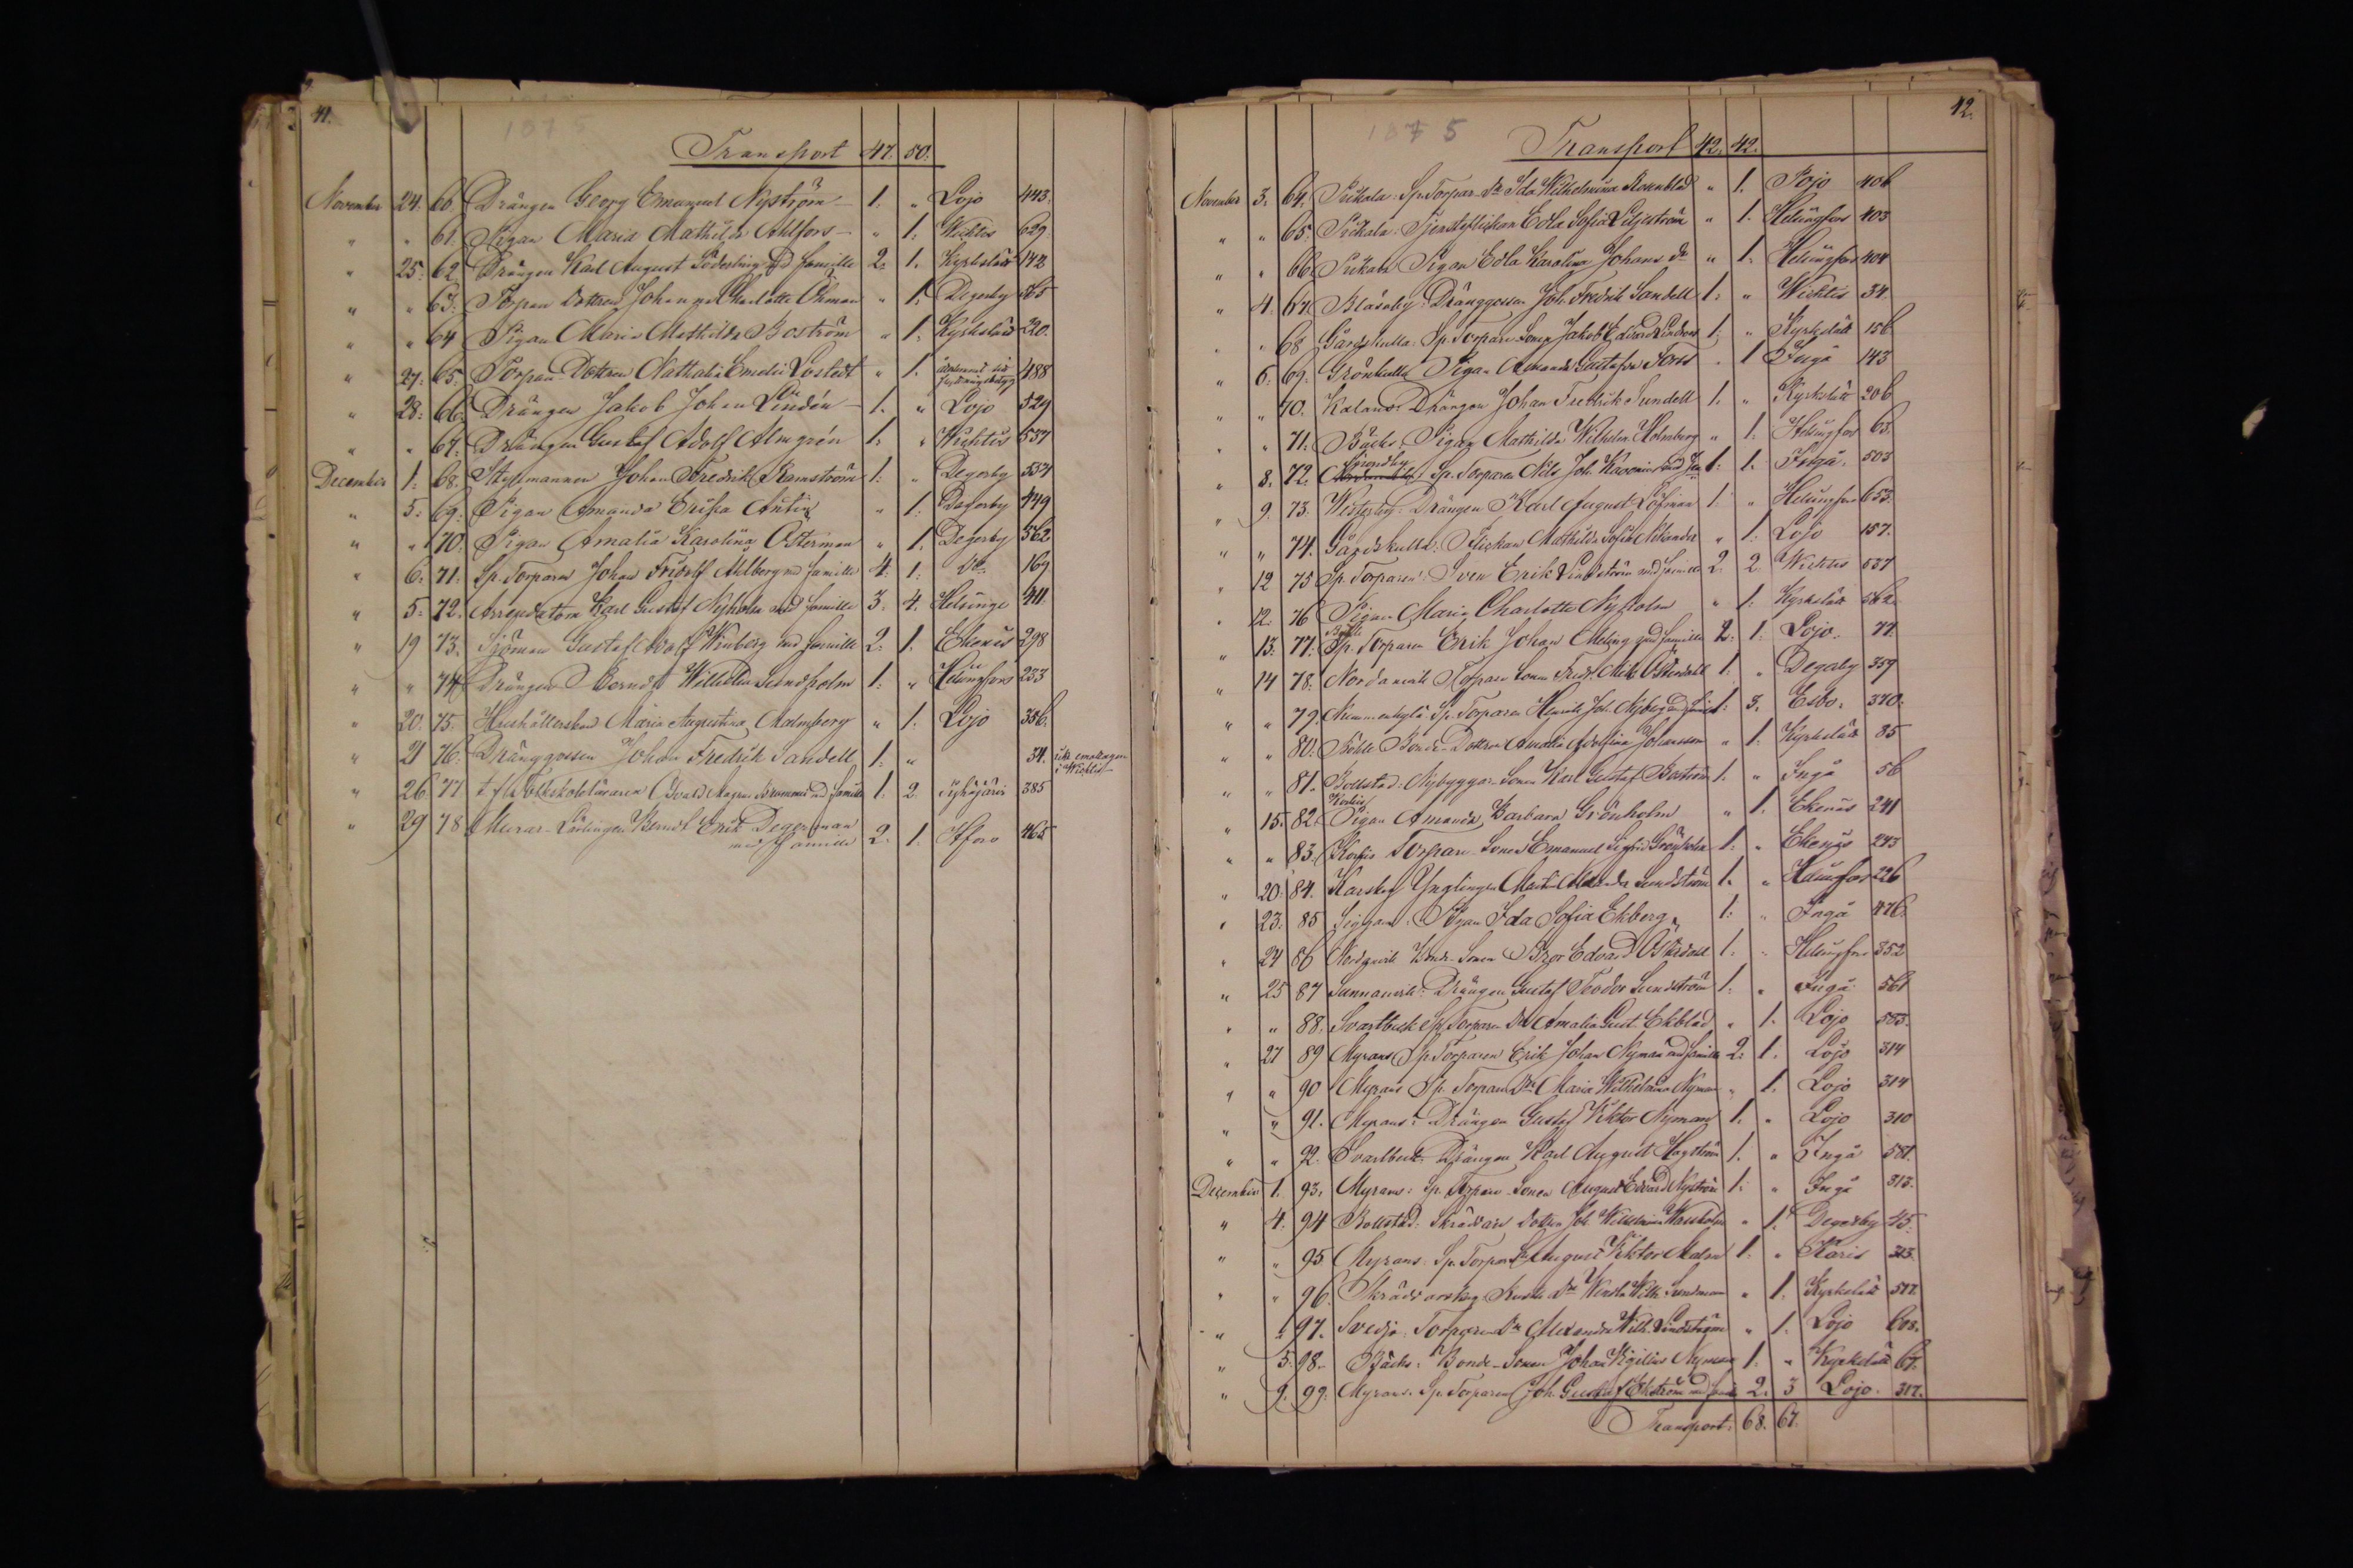 41.
1875
Transport 47. 50.
November 24. 60. Drängen Georg Emanuel Nyström — 1. " Lojo 443.
" " 61. Pigan Maria Mathilda Ahlfors — " 1. Wichtis 629.
" 25. 62. Drängen Karl August Söderling med familie 2. 1. Kyrkslätt 142
" " 63. Torpare Dottren Johanna Charlotta Öhman " 1. Degerby 365
" " 64 Pigan Maria Mathilda Boström " 1. Kyrkslätt 220.
" 27. 65. Torpare Dottren Nathalia Emelie Lostedt " 1. 488
" 28. 66. Drängen Jakob Johan Lindén — 1. " Lojo 529
" " 67. Drängen Gustaf Adolf Almgrén 1. " Wichtis 537
December 1. 68. Johan Fredrik Ramström 1. " Degerby 337
" 5. 69. Pigan Amanda Erika Antin " 1. Degerby 449
" " 70. Pigan Amalia Karolina Österman " 1. Degerby 362.
" 6. 71. Sp. Torparen Johan Fridolf Ahlberg med familie 4. 1. Do 169
" 5. 72. Arrendatorn Karl Gustaf Nyholm med familie 3. 4. Helsinge 411.
" 19 73. Sjöman Gustaf Adolf Winberg med familie 2. 1. Ekenäs 298
" " 74. Drängen Berndt Wilhelm Lundholm 1. " Helsingfors 233
" 20. 75. Hushållerskan Maria Augustina Malmberg " 1. Lojo 336.
" 21 76. Dränggossen Johan Fredrik Sandell 1. " 34. icke emottagen i Wichtis
" 26 77 Folkskoleläraren Osvald Magnus med familie 1. 2. 385
" 29 78 Murar-Lärlingen Berndt Erik Degerman
med familie 2. 1. 465
42.
1875
Transport 42. 42.
November 3. 64. Pickala: Sp. Torpar-Dr Ida Wilhelmina Rosenblad " 1. Pojo 406
" " 65. Pickala: Tjensteflickan Edla Sofia Liljeström " 1. Helsingfors 403
" " 66. Pickala Pigan Edla Karolina Johans dr " 1. Helsingfors 404
" 4. 67. Blåsaby: Dränggossen Joh. Fredrik Sandell 1. " Wichtis 34.
" " 68 Gårdskulla: Sp. Torpare Sonen Jakob Edvard 1. " Kyrkslätt 156
" 6. 69. Grönkulla Pigan Amanda Gustafva Forss " 1 Ingå 143
" " 70. Kalans: Drängen Johan Fredrik Sundell 1. " Kyrkslätt 206
" " 71. Bäcks: Pigan Mathilda Wilhelm. Holmberg " 1. Helsingfors 63.
" 8. 72. Sp. Torparen Nils Joh. med 1. 1. Ingå 503
" 9. 73. Westerby: Drängen Karl August Löfman 1. " Helsingfors 653.
" " 74. Gårdskulla: Flickan Mathilda Sofia " 1. Lojo 157.
" 12 75 Sp. Torparen: Sven Erik Lindström med familie 2. 2. Wichtis 537
" 12. 76 Pigan Maria Charlotta Nyholm " 1. Kyrkslätt 362.
" 13. 77. Sp. Torparen Erik Johan med familie 2. 1. Lojo 77.
" 14 78. Nordanvik Torpare Sonen Fredr. Österdahl 1. " Degerby 359
" " 79. Sp. Torparen Henrik Joh. Nyberg 1. 3. Esbo. 370.
" " 80. Böhle Bonde-Dottren Amalia Adolfina Johansson " 1. Kyrkslätt 85
" " 81. Bollstad: Nybyggar-Sonen Karl Gustaf Boström 1. " Ingå 56
" 15. 82. Pigan Amanda Barbara Grönholm " 1. Ekenäs 241
" " 83. Torpare-Sonen Emanuel Sigfrid Grönholm 1. " Ekenäs 243
" 20. 84. Karskog Ynglingen Martin Alexander Lundström 1. " Helsingfors 226
" 23. 85 Siggans: Pigan Ida Sofia Ekberg 1. " Ingå 476.
" 24 86 Nordanvik Bonde-Sonen Edvard Österdahl 1. " Helsingfors 352
" 25 87 Sunnanvik: Drängen Gustaf Teodor Lundström 1. " Ingå 561
" " 88. Svartbeck Sp. Torpare Dr Amalia Gust. Ekblad " 1. Lojo 583.
" 27 89 Myrans Sp. Torparen Erik Johan Nyman med familie 2. 1. Lojo 314
" " 90 Myrans Sp. Torpare Dr Maria Wilhelmina Nyman " 1. Lojo 314
" " 91. Myrans: Drängen Gustaf Viktor Nyman 1. " Lojo 310
" " 92. Svartbeck: Drängen Karl August Hagström 1. " Ingå 581.
December 1. 93. Myrans: Sp. Torpare-Sonen August Edvard Nyström 1. " Ingå 313.
" 4. 94 Bollstad: Skräddare Dottren Joh. Wilhelmina " 1. Degerby 45.
" " 95 Myrans: Sp. Torpare August Viktor Malm 1. " Karis 313.
" " 96. Skräddarskog Dr Wilh. Sundman " 1. Kyrkslätt 517.
" " 97. Svedja: Torparen Dr Alexandra Wilh. Lindström " 1. Lojo 608.
" 5. 98. Bäcks: Bonde-Sonen Johan Vigilius Nyman 1. " Kyrkslätt 67.
" 9. 99. Myrans: Sp. Torparen Joh. Gustaf Ekström med familie 2. 3 Lojo 317.
Transport: 68. 67.